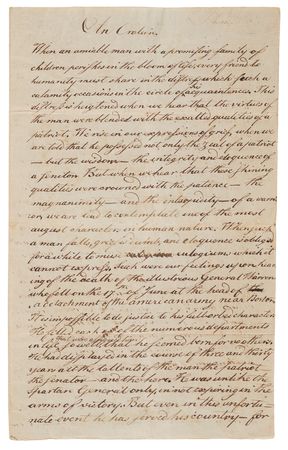 An Oration.
When an amiable man with a promising family of
children perishes in the bloom of life, every friend to
humanity must share in the distress which such a
calamity occasions in the circle of his acquaintences. This
distress is heightened when we hear that the virtues of
the man were blended with the exalted qualities of a
patriot. We rise in our expressions of grief, when we
are told that he possessed not only the zeal of a patriot
— but the wisdom — the integrity and eloquence of
a senator. But when we hear that these shining
qualities were crowned with the patience — the
magnanimity — and the intrepidity — of a warrior
we are led to contemplate one of the most
august characters in human nature. When such
a man falls, grief is dumb, and eloquence is obliged
for a while to muse eulogium, which it
cannot express. Such were our feelings upon hearing
of the death of the illustrious General Warren
who fell on the 17th of June at the head of
a detachment of the american army near Boston.
It is impossible to do justice to his full orbed character.
He filled each of the numerous departments
of life that were assigned to him so well that he seemed born for no other.
He had displayed in the course of three and thirty
years all the talents of the man, the patriot
the senator — and the hero. He was unlike the
Spartan General only, in not expiring in the
arms of victory. But even in this unfortunate
event he has served his country — for